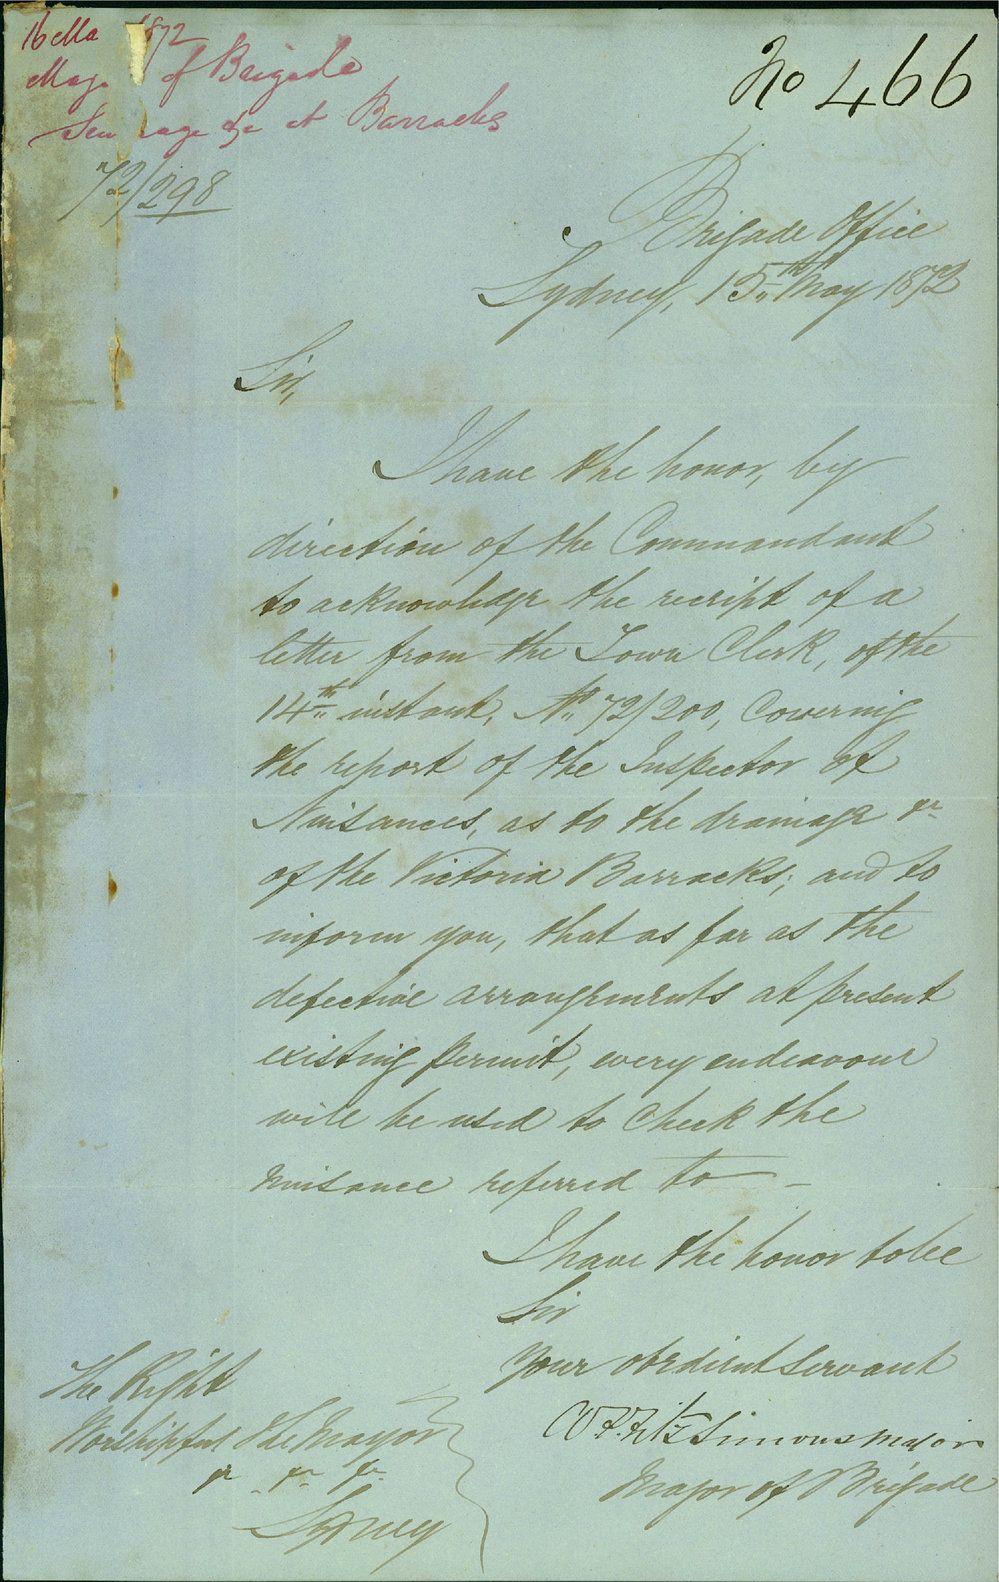 16 Ma 1872
Majo of Brigade
Sewrage &c at Barracks
72/298
No 466
Brigade Office
Sydney, 15th May 1872
Sir,
I have the honor, by
direction of the Commandant
to acknowledge the receipt of a
letter from the Town Clerk, of the
14th instant, No 72/200, Covering
the report of the Inspector of
Nuisances, as to the drainage &c
of the Victoria Barracks; and to
inform you, that as far as the
defective arrangements at present
existing permit, every endeavour
will be used to Check the
nuisance referred to —
I have the honor to be
Sir
Your obedient Servant
W F FitzSimons Major
Major of Brigade
The Right
Worshipful The Mayor
&c &c &c
Sydney